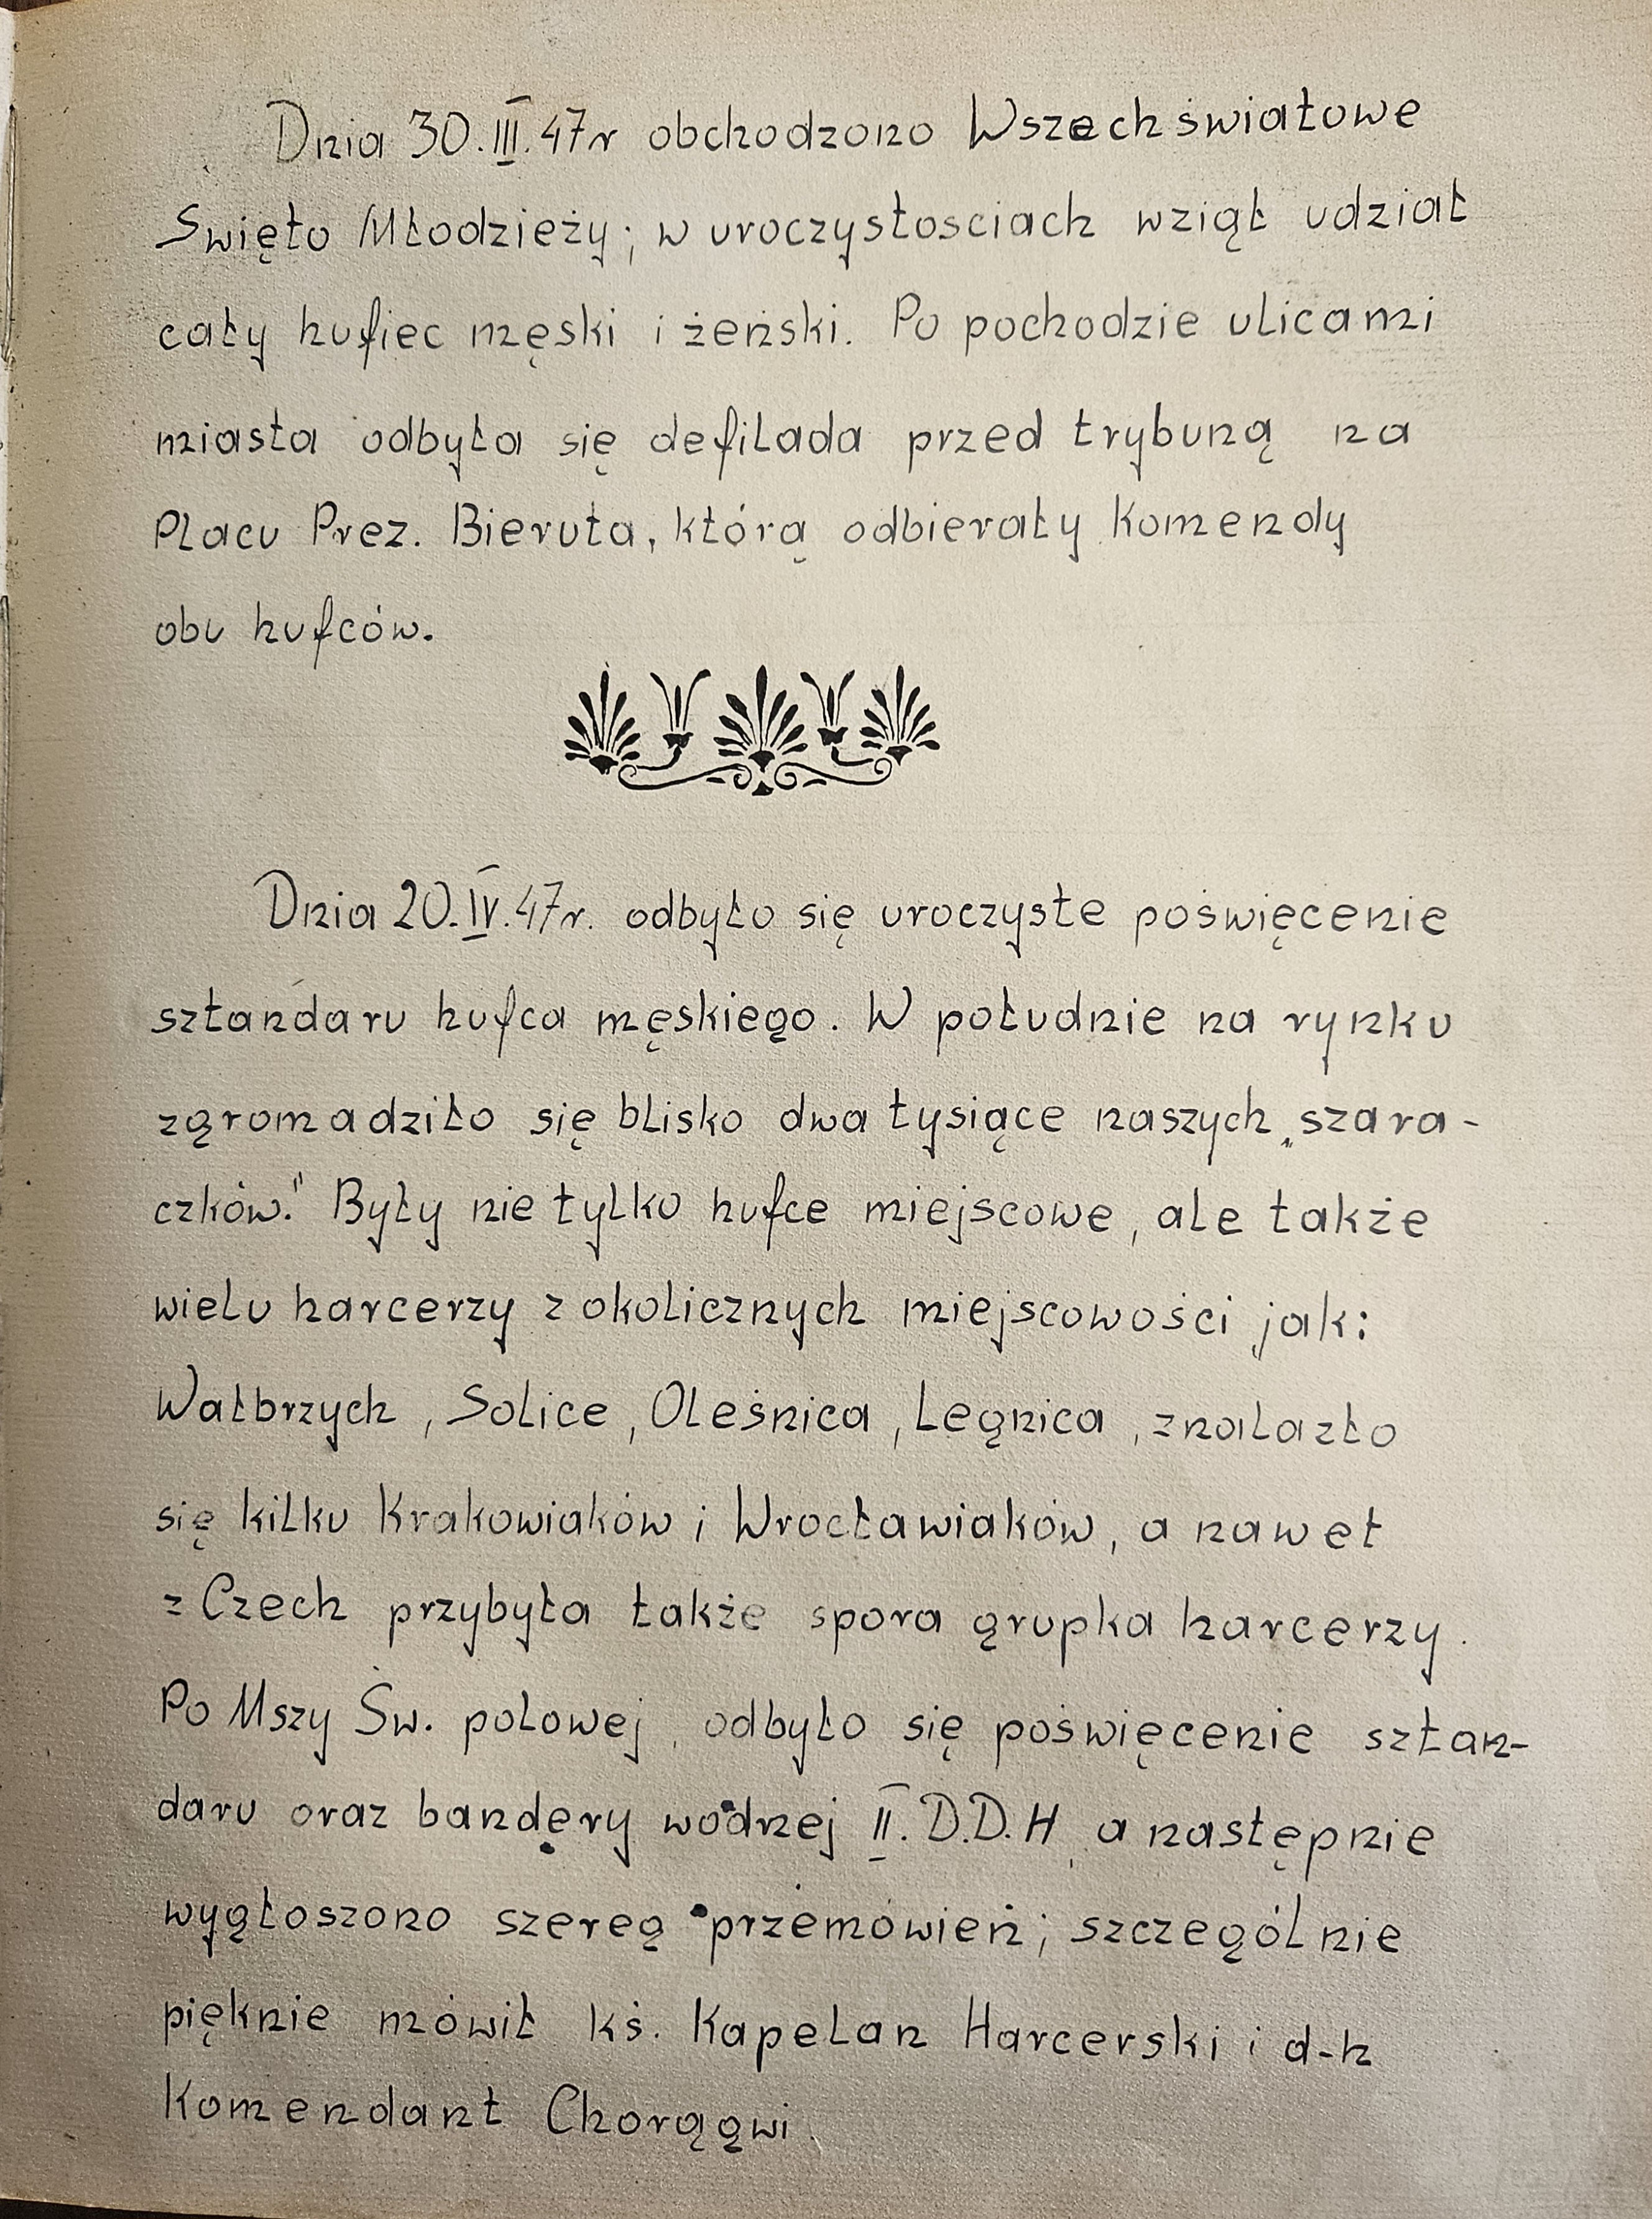 Dnia 30.III.47r obchodzono Wszechświatowe
Swięto Młodzieży; w uroczystosciach wziął udział
cały hufiec męski i żeński. Po pochodzie ulicami
miasta odbyła się defilada przed trybuną na
Placu Prez. Bieruta, którą odbierały Komendy
obu hufców.
Dnia 20.IV.47r. odbyło się uroczyste poświęcenie
sztandaru hufca męskiego. W południe na rynku
zgromadziło się blisko dwa tysiące naszych „szara-
czków." Były nie tylko hufce miejscowe, ale także
wielu harcerzy z okolicznych miejscowości jak:
Wałbrzych, Solice, Oleśnica, Legnica, znalazło
się kilku Krakowiaków i Wrocławiaków, a nawet
z Czech przybyła także spora grupka harcerzy.
Po Mszy Św. polowej, odbyło się poświęcenie sztan-
daru oraz bandery wodnej II. D.D.H, a następnie
wygłoszono szereg przemówień; szczególnie
pięknie mówił kś. Kapelan Harcerski i d-h
Komendant Chorągwi.